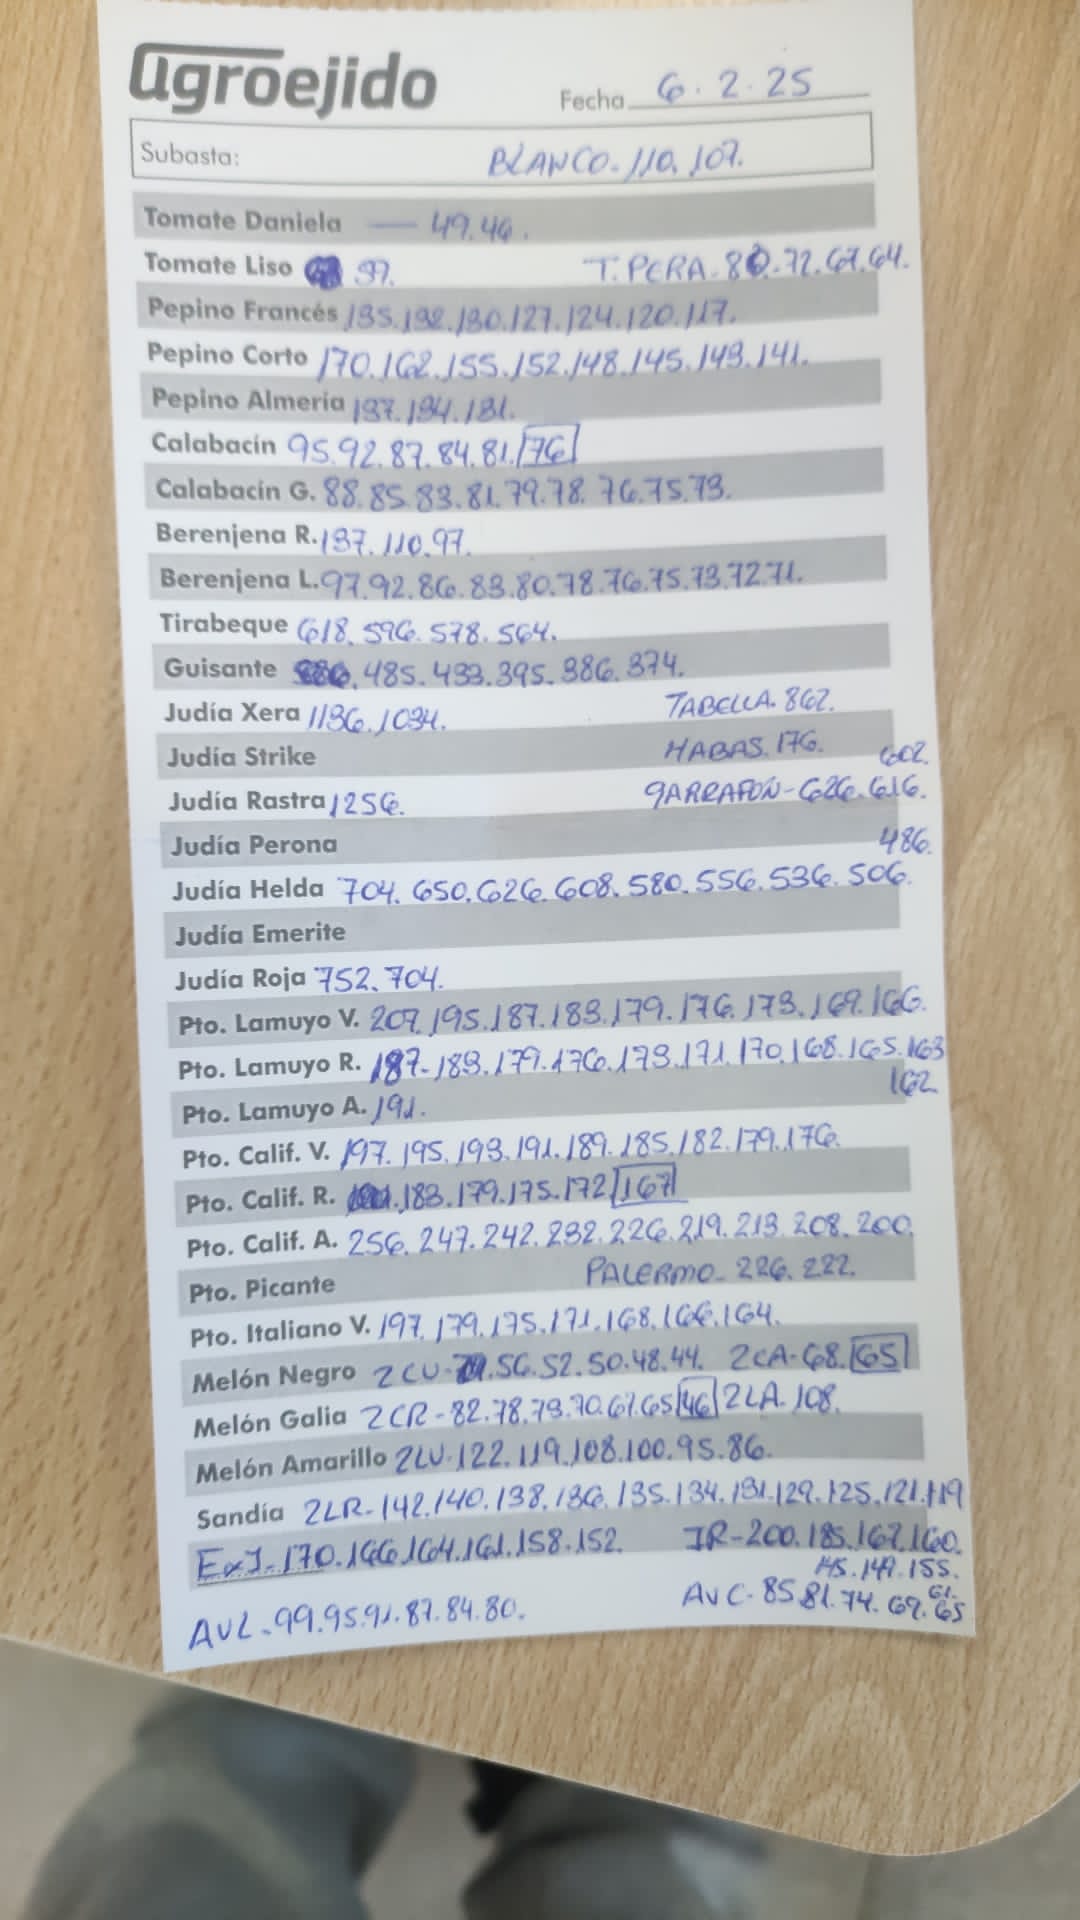 agroejido
Fecha 6.2.25
Subasta: BLANCO.110.107.
Tomate Daniela — 49.46.
Tomate Liso 37. T.PERA-80.72.67.64.
Pepino Francés 135.132.130.127.124.120.117.
Pepino Corto 170.162.155.152.148.145.143.141.
Pepino Almería 137.134.131.
Calabacín 95.92.87.84.81.76
Calabacín G. 88.85.83.81.79.78.76.75.73.
Berenjena R. 137.110.97.
Berenjena L. 97.92.86.83.80.78.76.75.73.72.71.
Tirabeque 618.596.578.564.
Guisante 485.433.395.386.374.
Judía Xera 1136.1034. TABELLA.862.
Judía Strike HABAS.176. 602.
Judía Rastra 1256. GARRAFON-626.616.
Judía Perona 486.
Judía Helda 704.650.626.608.580.556.536.506.
Judía Emerite
Judía Roja 752.704.
Pto. Lamuyo V. 207.195.187.183.179.176.173.169.166.
Pto. Lamuyo R. 187-183.179.176.173.171.170.168.165.163
Pto. Lamuyo A. 191. 162.
Pto. Calif. V. 197.195.193.191.189.185.182.179.176.
Pto. Calif. R. 183.179.175.172 167
Pto. Calif. A. 256.247.242.232.226.219.213.208.200.
Pto. Picante PALERMO-226.222.
Pto. Italiano V. 197.179.175.171.168.166.164.
Melón Negro 2CU-56.52.50.48.44. 2CA-68.65
Melón Galia 2CR-82.78.73.70.67.65 46 2LA.108.
Melón Amarillo 2LV-122.119.108.100.95.86.
Sandía 2LR-142.140.138.136.135.134.131.129.125.121.119
ExJ-170.166.164.161.158.152. IR-200.185.167.160.
145.149.155.
AVL-99.95.91.87.84.80. AVC-85.81.74.69.65
61.